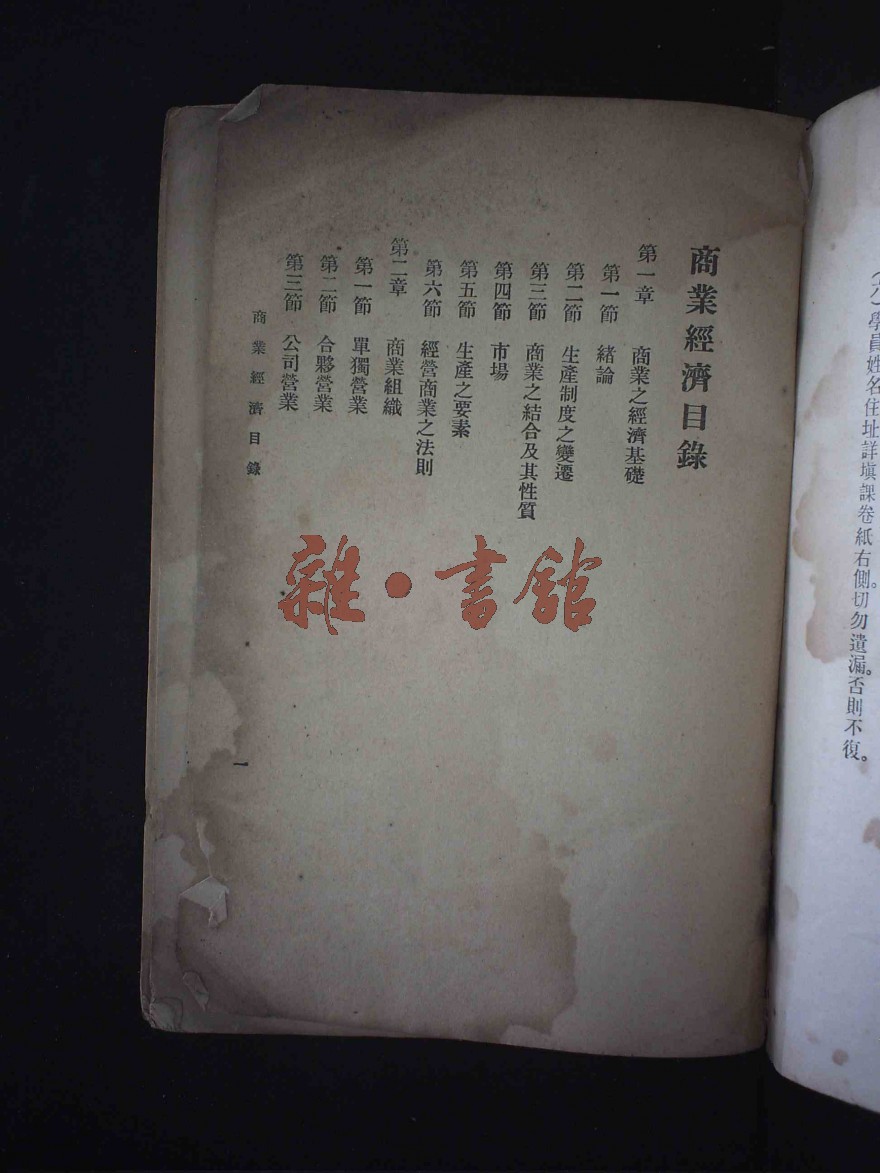 (六)學員姓名住址詳填課卷紙右側。切勿遺漏。否則不復。
商業經濟目錄
第一章 商業之經濟基礎
第一節 緒論
第二節 生產制度之變遷
第三節 商業之結合及其性質
第四節 市場
第五節 生產之要素
第六節 經營商業之法則
第二章 商業組織
第一節 單獨營業
第二節 合夥營業
第三節 公司營業
商業經濟目錄
一
雜·書館